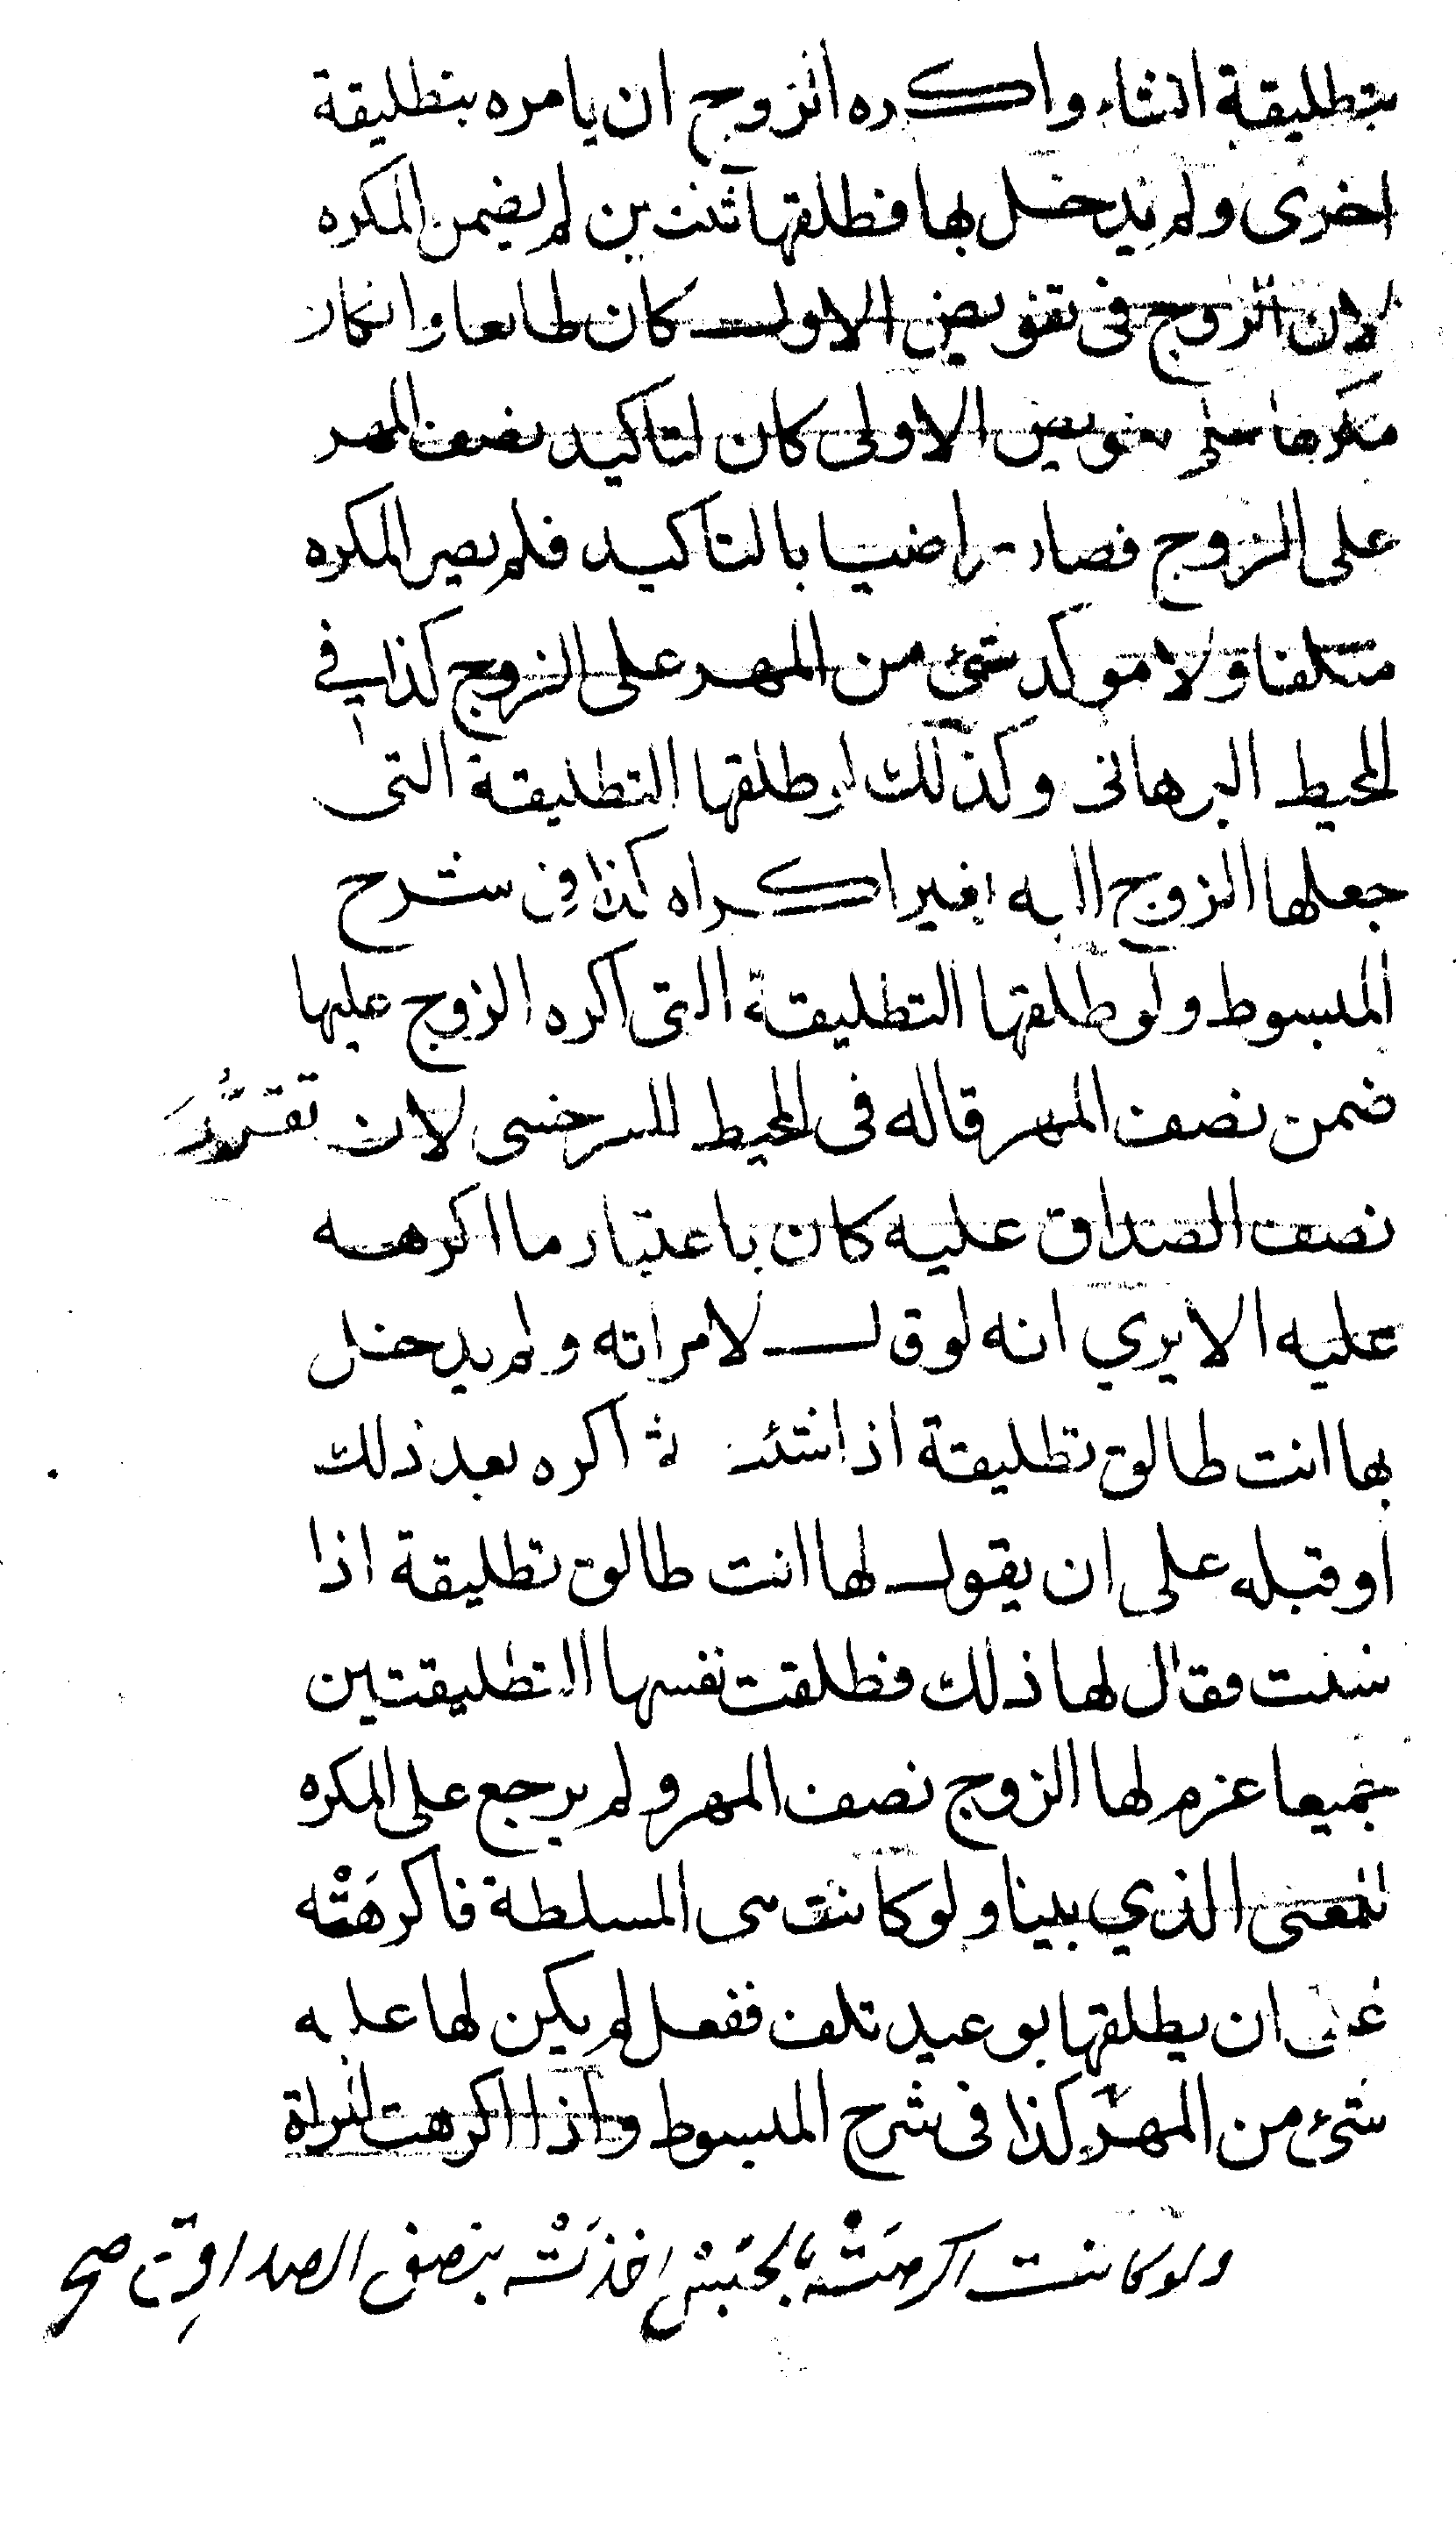 بتطليقة انشاء واكره الزوج ان يامره بتطليقة
اخرى ولم يدخل بها فطلقها ثنتين لم يضمن المكره
لان الزوج في تفويض الاول كان طايعا وانكان
مكرها تفويض الاولى كان لتاكيد نصف المهر
على الزوج فصار راضيا بالتاكيد فلم يصير المكره
متلفا ولا موكد شئ من المهر على الزوج كذا في
المحيط البرهانى وكذلك لو طلقها التطليقة التى
جعلها الزوج اليه بغير اكراه كذا في شرح
المبسوط ولو طلقها التطليقة التى اكره الزوج عليها
ضمن نصف المهر قاله فى المحيط للسرخسى لان تقرُّرَ
نصف الصداق عليه كان باعتبار ما اكرهه
عليه الا يري انه لو قال لامراته ولم يدخل
بها انت طالق تطليقة اذا شئت ثم اكره بعد ذلك
او قبله على ان يقول لها انت طالق تطليقة اذا
شئت فقال لها ذلك فطلقت نفسها التطليقتين
جميعا غرم لها الزوج نصف المهر ولم يرجع على المكره
للمعنى الذي بينا ولو كانت هى المسلطة فاكرهَتْه
على ان يطلقها بوعيد تلف ففعل لم يكن لها عليه
شئ من المهر كذا فى شرح المبسوط واذا اكرهت المراة
ولو كانت اكرهَتْه بالحَبْسِ اخذَتْه بنصف الصداق صح